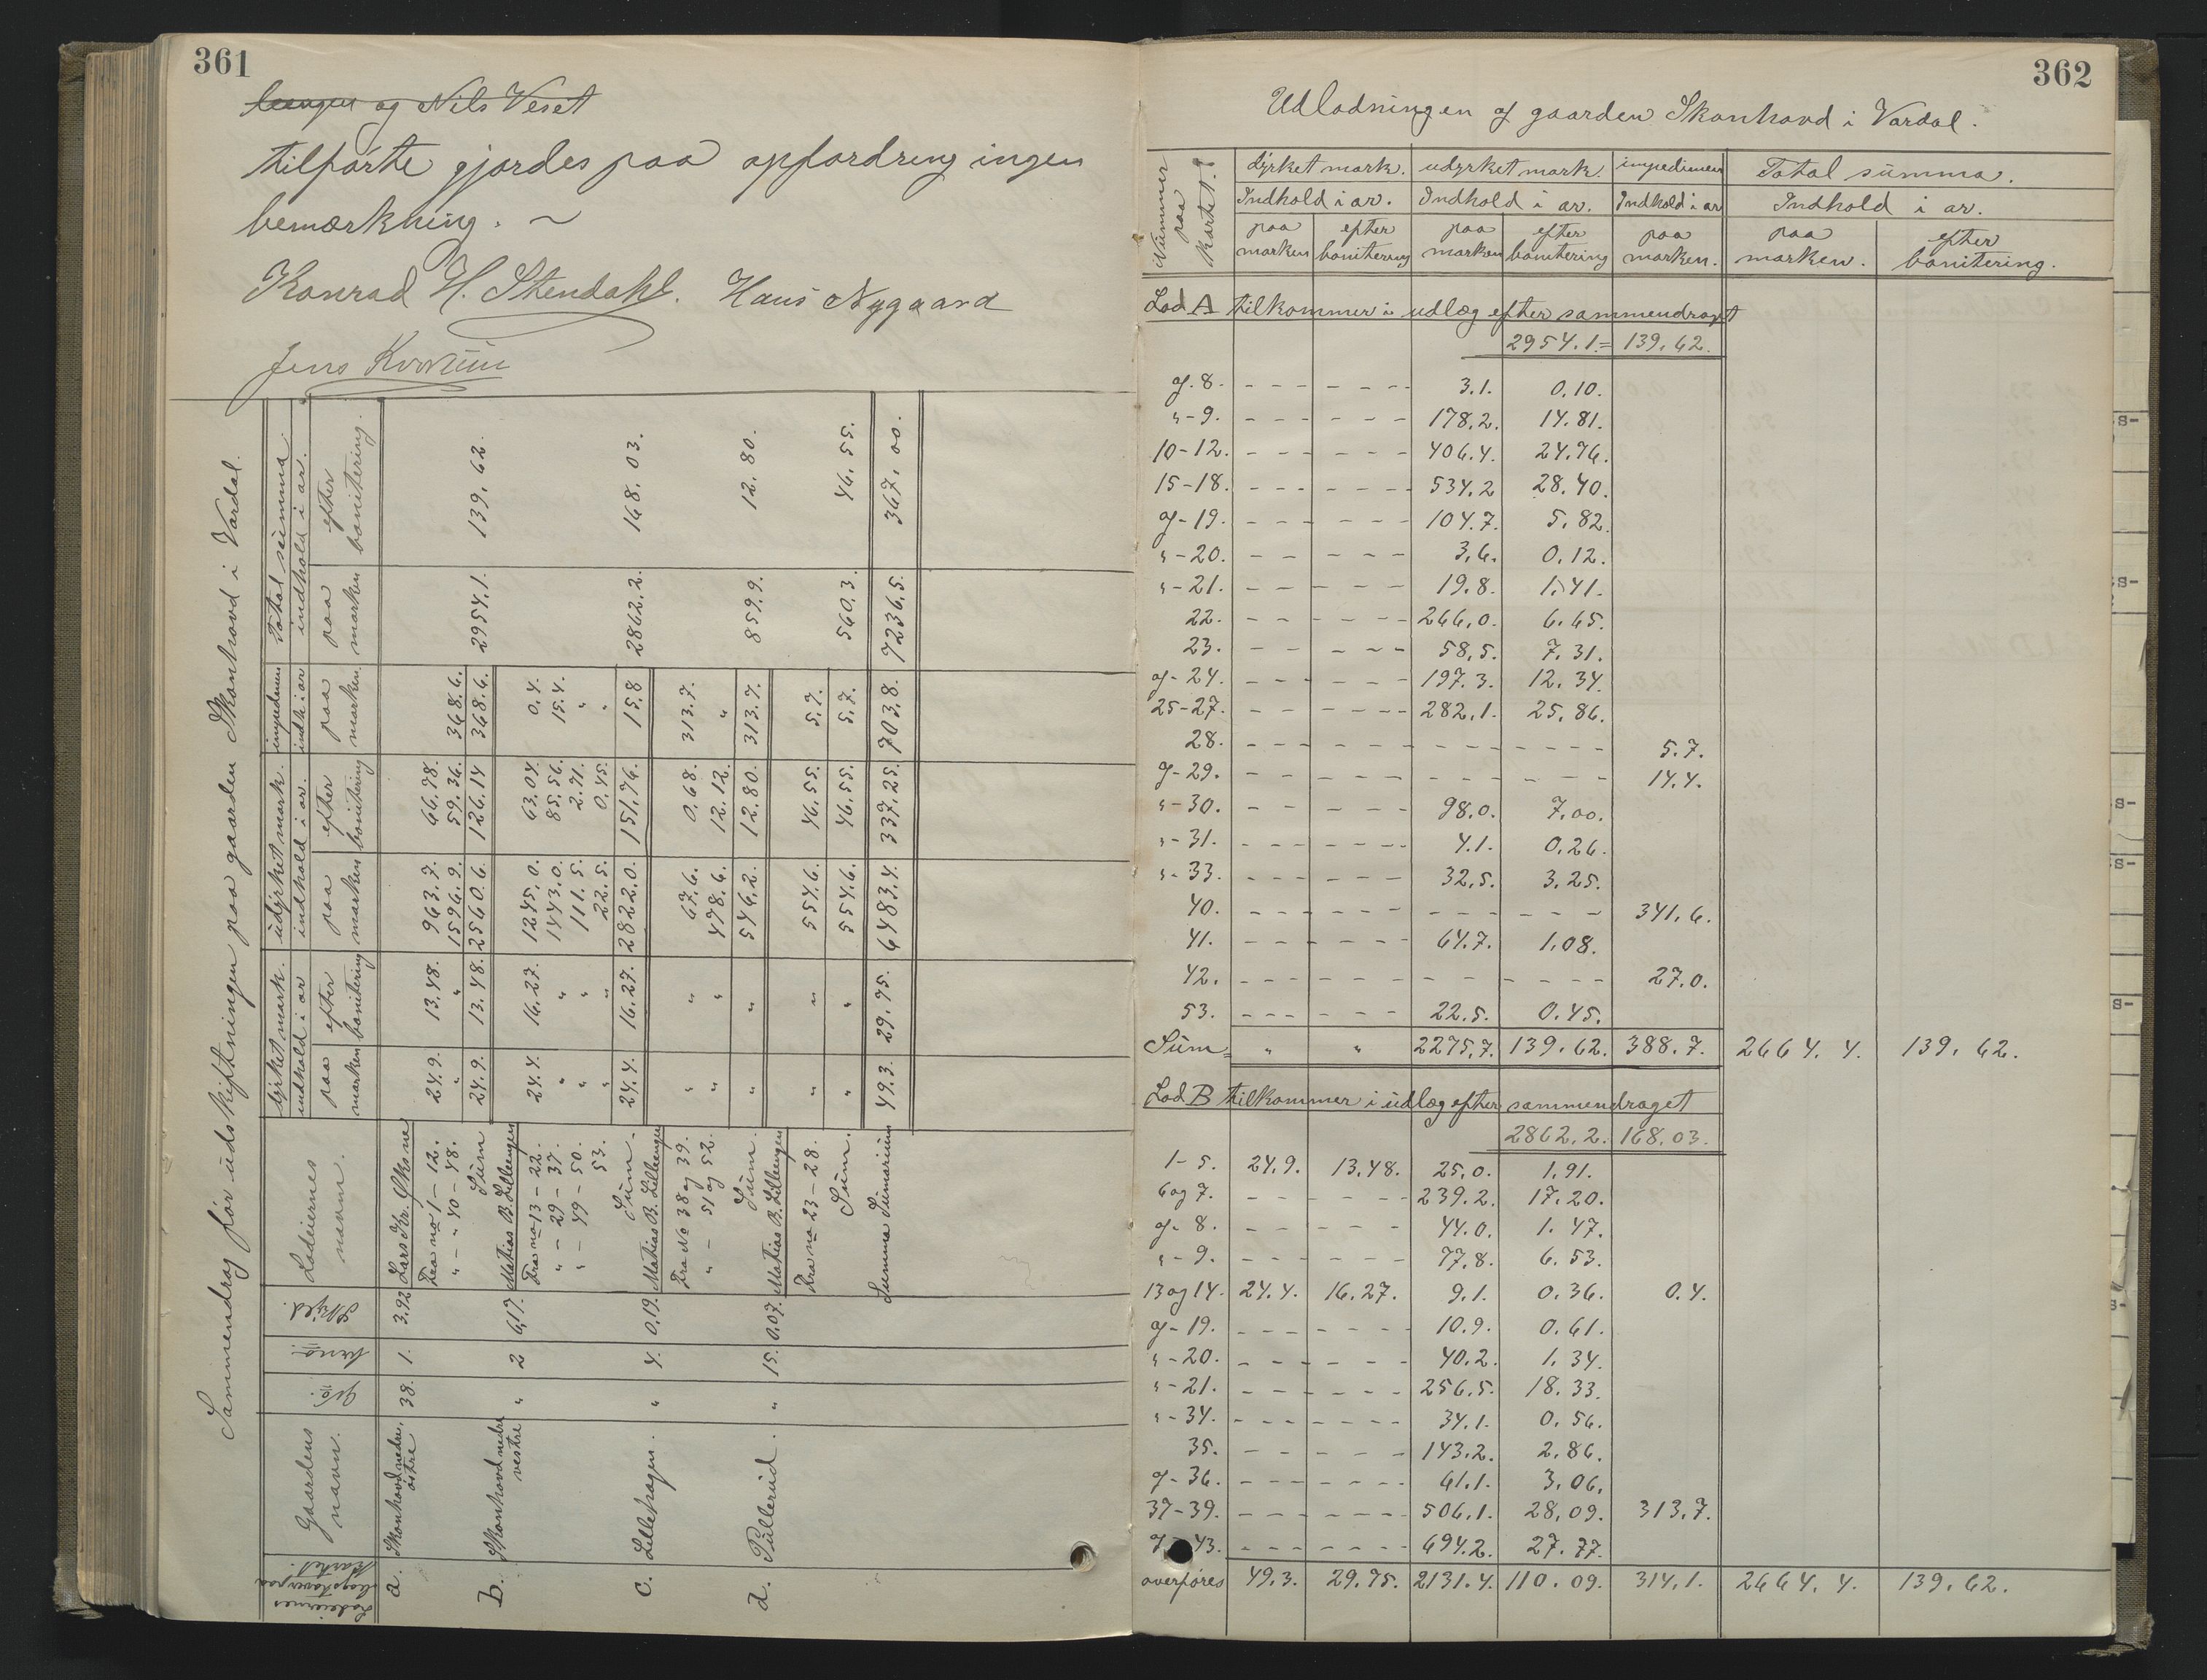 361
og Nils Veset
tilførte gjordes paa opfordring ingen
bemærkning. ~
Konrad H. Stendahl. Hans Nygaard
Jens Kvorum
Sammendrag før udskiftningen paa gaarden Skonhovd i Vardal.
Lodeiernes bogstaver paa kartet. | Gaardens navn. | Gno. | brno. | Skyld. | Lodeiernes navn. | dyrket mark. indhold i ar | udyrket mark. indhold i ar. | impedimen indh. i ar | Total summa. indhold i ar.
paa marken | efter bonitering | paa marken | efter bonitering | paa marken. | paa marken | efter bonitering.
a. Skonhovd nedre, østre 38. 1. 3.92 Lars Kr. Øksne
Fra no 1 - 12. 24.9. 13.48. 963.7. 66.78.
" - " 40 - 48. " " 1596.9. 59.36. 368.6.
Sum 24.9. 13.48. 2560.6. 126.14 368.6. 2954.1. 139.62.
b. Skonhovd nedre vestre " 2 6,17. Matias B. Lilleengen
Fra no 13 - 22. 24.4. 16.27. 1245.0. 63.04. 0.4.
" - 29 - 37. " " 1443.0. 85.56. 15.4.
" - 49 - 50. " " 111.5. 2.71. "
53. " " 22.5. 0.45. "
Sum. 24.4. 16.27. 2822.0. 151.76. 15.8 2862.2. 168.03.
c. Lillehagen. " 4. 0.19. Matias B. Lilleengen
Fra No 38 og 39. " " 67.6. 0.68. 313.7.
" - 51 og 52. " " 478.6. 12.12. "
Sum. " " 546.2. 12.80. 313.7. 859.9. 12.80.
d. Pullerud. " 15. 0.07. Matias B. Lilleengen
Fra no 23 - 28. " " 554.6. 46.55. 5.7.
Sum. " " 554.6. 46.55. 5.7. 560.3. 46.55.
Summa Sumarium 49.3. 29.75. 6483.4. 337.25. 703.8. 7236.5. 367.00.
362
Udlodningen af gaarden Skonhovd i Vardal.
Nummer paa kartet. | dyrket mark. | udyrket mark. | impedimen | Total summa.
Indhold i ar. | Indhold i ar. | Indhold i ar | Indhold i ar.
paa marken | efter bonitering | paa marken | efter bonitering | paa marken. | paa marken. | efter bonitering.
Lod A tilkommer i udlæg efter sammendraget
2954.1.= 139.62.
af. 8. - - - - - - 3.1. 0.10.
" - 9. - - - - - - 178.2. 14.81.
10-12. - - - - - - 406.4. 24.76.
15-18. - - - - - - 534.2 28.40.
af - 19. - - - - - - 104.7. 5.82.
" - 20. - - - - - 3.6. 0.12.
" - 21. - - - - - 19.8. 1.41.
22. - - - - - - 266.0. 6.65.
23. - - - - - 58.5. 7.31.
af - 24. - - - - - 197.3. 12.34.
25-27. - - - - - - 282.1. 25.86.
28. - - - - - - - - - - - 5.7.
af - 29. - - - - - - - - - 14.4.
" - 30. - - - - - - 98.0. 7.00.
" - 31. - - - - - - 4.1. 0.26.
" - 33. - - - - - - 32.5. 3.25.
40. - - - - - - - - - - - 341.6.
41. - - - - - - 64.7. 1.08.
42. - - - - - - - - - - - 27.0.
53. - - - - - - 22.5. 0.45.
Sum " " 2275.7. 139.62. 388.7. 2664.4. 139.62.
Lod B tilkommer i udlæg efter sammendraget
2862.2. 168.03.
1-5. 24.9. 13.48. 25.0. 1.91.
6 og 7. - - - - - - 239.2. 17.20.
af - 8. - - - - - - 44.0. 1.47.
" - 9. - - - - - - 77.8. 6.53.
13 og 14. 24.4. 16.27. 9.1. 0.36. 0.4.
af - 19. - - - - - - 10.9. 0.61.
" - 20. - - - - - - 40.2. 1.34.
" - 21. - - - - - - 256.5. 18.33.
" - 34. - - - - - - - 34.1. 0.56.
35. - - - - - - 143.2. 2.86.
af - 36. - - - - - - 61.1. 3.06.
37-39. - - - - - - 506.1. 28.09. 313.7.
43. - - - - - - 694.2. 27.77.
overføres 49.3. 29.75. 2131.4. 110.09. 314.1. 2664.4. 139.62.